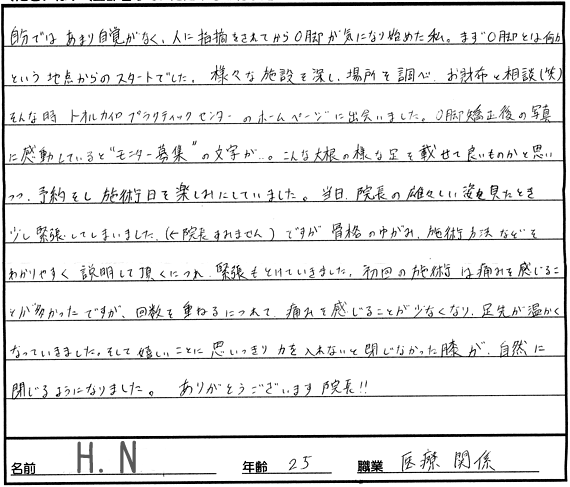 自分ではあまり自覚がなく、人に指摘をされてからO脚が気になり始めた私。まずO脚とは何か
という地点からのスタートでした。様々な施設を探し、場所を調べ、お財布と相談(笑)
そんな時トオルカイロプラクティックセンターのホームページに出会いました。O脚矯正後の写真
に感動していると"モニター募集"の文字が…。こんな大根の様な足を載せて良いものかと思い
つつ、予約をし施術日を楽しみにしていました。当日、院長の雄々しい姿を見たとき
少し緊張してしまいました。(←院長すみません)ですが骨格のゆがみ、施術方法などを
わかりやすく説明して頂くにつれ、緊張もとけていきました。初回の施術は痛みを感じるこ
とが多かったですが、回数を重ねるにつれて、痛みを感じることが少なくなり、足先が温かく
なっていきました。そして嬉しいことに思いっきり力を入れないと閉じなかった膝が、自然に
閉じるようになりました。ありがとうございます院長!!
名前 H.N 年齢 25 職業 医療関係